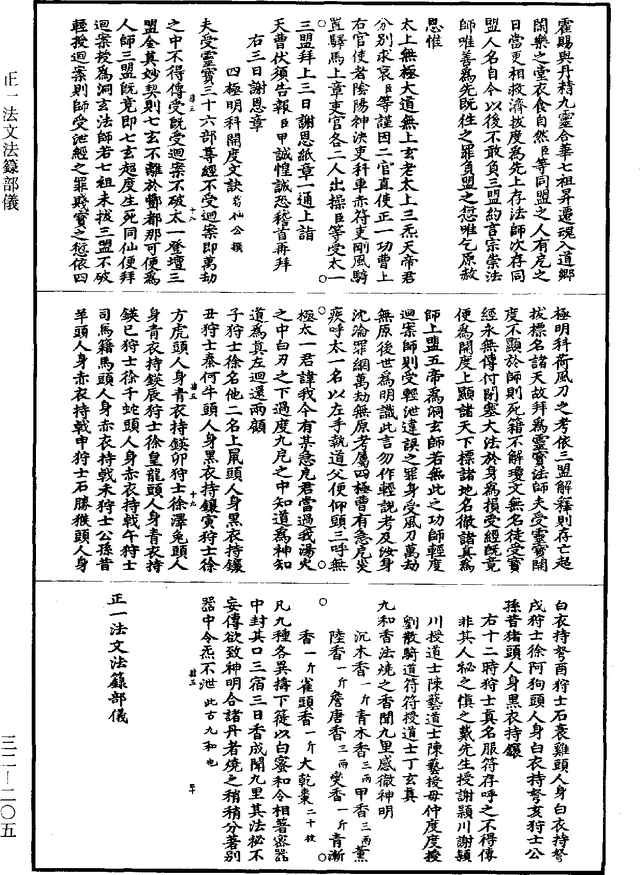 霍賜與丹精九靈合華七祖昇遷魂入道鄉
闕樂之堂衣食自然臣等同盟之人有危之
日當更相救濟拔度為先上存法師次存同
盟人名自今以後不敢負三盟約言宗崇法
師唯善為先既往之罪負盟之愆唯乞原赦
恩惟
太上無極大道無上玄老太上三炁天帝君
分別求哀臣等謹因二官直使正一功曹上
右官使者陰陽神決吏科車赤符吏剛風騎
置驛馬上章吏官各二人出操臣等受太一
三盟拜上三日謝恩紙章一通上詣
天曹伏須告報臣甲誠惶誠恐稽首再拜
右三日謝恩章
四極明科開度文訣 葛仙公撰
夫受靈寶三十六部尊經不受迴案即萬劫
之中不得傳受既受迴案不破太一登壇三
盟金真妙契則七玄不離於酆都那可便為
人師三盟既竟即七玄超度生死同仙便拜
迴案授為洞玄法師若七祖未拔三盟不破
輕授迴案則師受泄經之罪賤寶之愆依四
極明科荷風刀之考依三盟解釋則存亡起
拔標名諸天故拜為靈寶法師夫受靈寶開
度不顯於師則死籍不解瓊文無名徒受寶
經永無傳付閉塞大法於身為損受經既竟
便為開度上顯諸天下標諸地名徹諸真為
師上盟五帝為洞玄師若無此之功師輕度
迴案師則受輕泄違誤之罪身受風刀萬劫
無原後世為明識此言勿作輕說考及汝身
沈淪罪網萬劫無原考屬四極曹有急危災
疾呼太一名以左手執道父便仰頭三呼無
極太一君諱我今有某急危君當過我湯火
之中白刃之下過度九危之中知道為神知
道為真左迴還兩顧
子狩士徐名他二名上鼠頭人身黑衣持鑲
丑狩士秦何牛頭人身黑衣持鑲寅狩士徐
方虎頭人身青衣持鋑卯狩士徐澤兔頭人
身青衣持鋑辰狩士徐皇龍頭人身青衣持
鋑巳狩士徐千蛇頭人身赤衣持戟午狩士
司馬籍馬頭人身赤衣持戟未狩士公孫昔
羊頭人身赤衣持戟申狩士石勝猴頭人身
白衣持弩酉狩士石衷雞頭人身白衣持弩
戌狩士徐阿狗頭人身白衣持弩亥狩士公
孫昔猪頭人身黑衣持鑲
右十二時狩士真名服符存呼之不得傳
非其人秘之慎之戴先生授謝穎川謝穎
川授道士陳藝道士陳藝授母仲度度授
劉散騎道符符授道士丁玄真
九和香法燒之香聞九里感徹神明
沉木香一斤青木香三兩甲香三兩薰
陸香一斤詹唐香三兩燮香一斤青漸
香一斤雀頭香一斤大乾棗二十枚
凡九種各異擣下蓰以白蜜和令相著密器
中封其口三宿三日香成聞九里其法秘不
妄傳欲致神明合諸丹者燒之稍稍分著別
器中令炁不泄 此古九和也
正一法文法籙部儀
正一法文法籙部儀
三二—二〇五